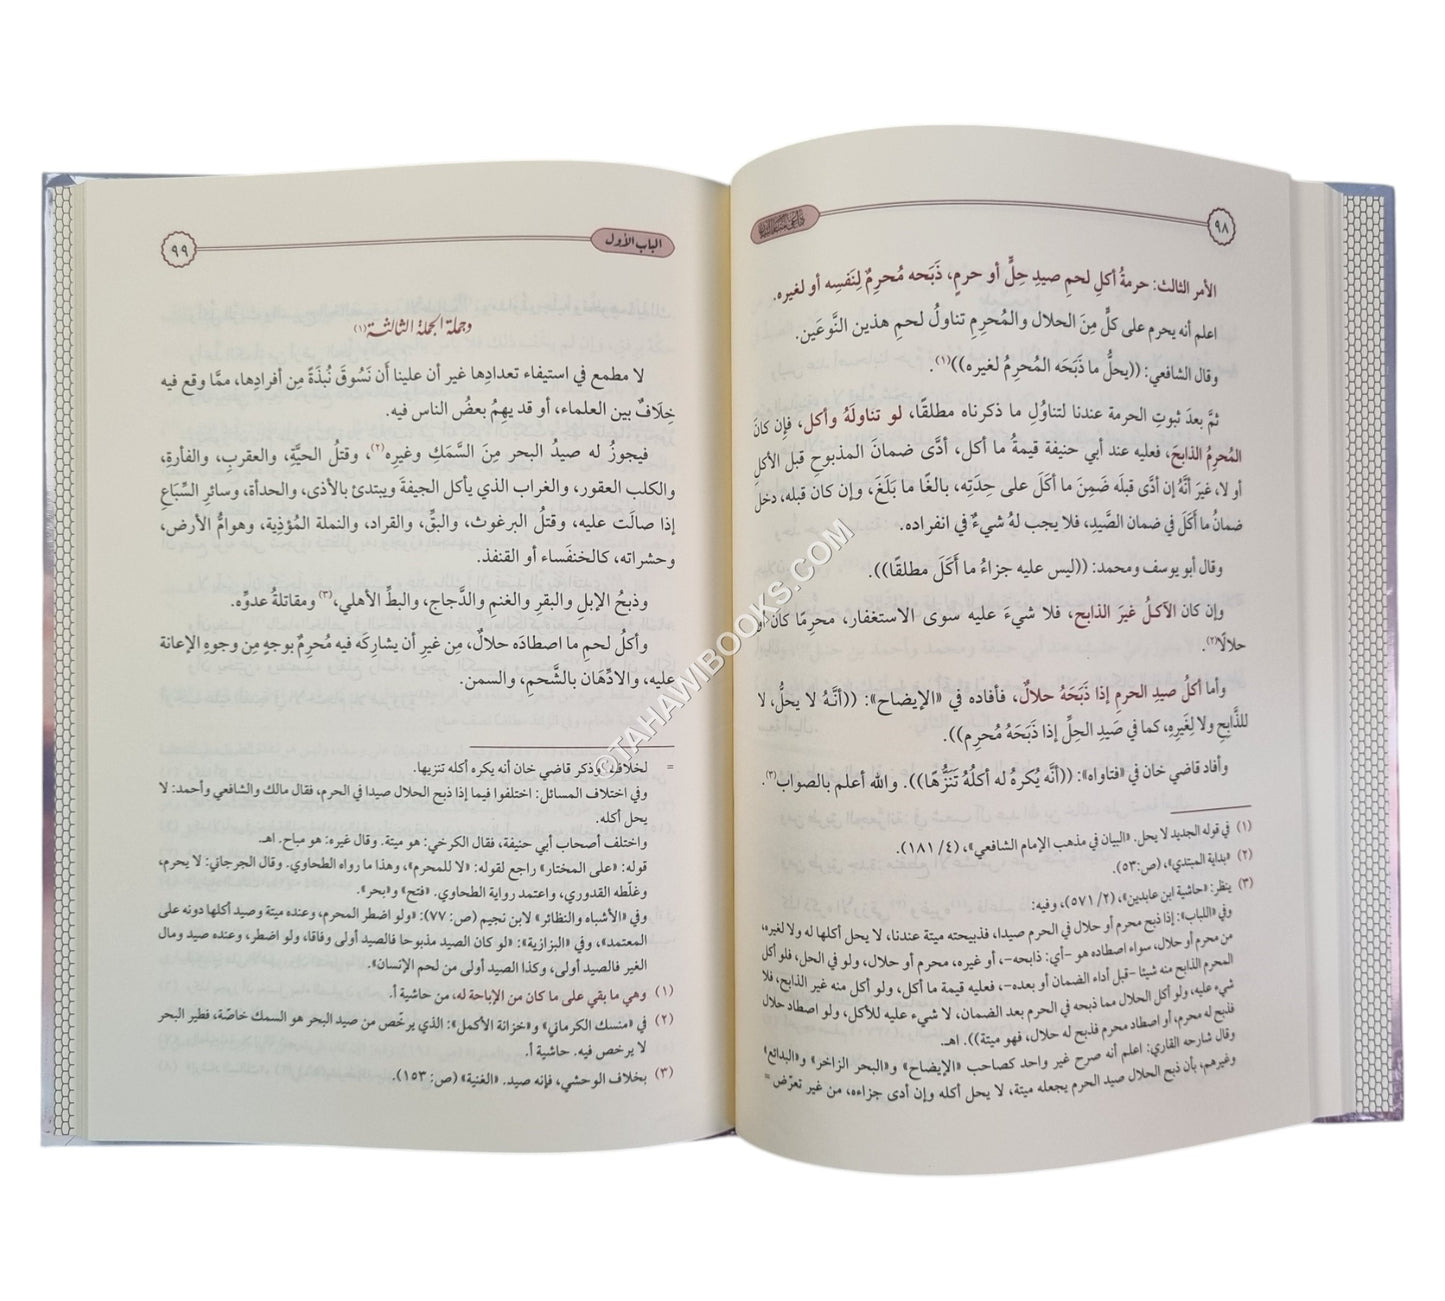 ٩٨
الأمر الثالث: حرمةُ أكلِ لحمِ صيدِ حِلٍّ أو حرمٍ، ذَبَحه مُحرِمٌ لِنَفسِه أو لغيره.
اعلم أنه يحرم على كلٍّ مِنَ الحلال والمُحرِمِ تناولُ لحمِ هذين النَّوعَين.
وقال الشافعي: ((يحلُّ ما ذَبَحَه المُحرِمُ لغيره))(١).
ثمَّ بعدَ ثبوتِ الحرمة عندنا لتناوُلِ ما ذكرناه مطلقًا، لو تناولَهُ وأكل، فإِن كانَ
المُحرِمُ الذابحَ، فعليه عند أبي حنيفة قيمةُ ما أكل، أدَّى ضمانَ المذبوحِ قبل الأكلِ
أو لا، غيرَ أنَّهُ إن أدَّى قبلَه ضَمِنَ ما أكَلَ على حِدَتِه، بالغًا ما بَلَغَ، وإن كان قبله، دخل
ضمانُ ما أكَلَ في ضمان الصَّيدِ، فلا يجب لهُ شيءٌ في انفراده.
وقال أبو يوسف ومحمد: ((ليس عليه جزاءُ ما أكَلَ مطلقًا)).
وإن كان الآكلُ غيرَ الذابح، فلا شيءَ عليه سوى الاستغفار، محرِمًا كان أو
حلالًا(٢).
وأما أكلُ صيدِ الحرمِ إذا ذَبَحَهُ حلالٌ، فأفاده في «الإيضاح»: ((أنَّهُ لا يحلُّ، لا
للذَّابحِ ولا لِغَيرِهِ، كما في صَيدِ الحِلِّ إذا ذَبَحَهُ مُحرِم)).
وأفاد قاضي خان في «فتاواه»: ((أنَّه يُكرهُ له أكلُهُ تَنَزُّهًا)). والله أعلم بالصواب(٣).
(١) في قوله الجديد لا يحل. «البيان في مذهب الإمام الشافعي»، (٤/ ١٨١).
(٢) «بداية المبتدي»، (ص:٥٣).
(٣) ينظر: «حاشية ابن عابدين»، (٢/ ٥٧١)، وفيه:
وفي «اللباب»: إذا ذبح محرم أو حلال في الحرم صيدا، فذبيحته ميتة عندنا، لا يحل أكلها له ولا لغيره،
من محرم أو حلال، سواء اصطاده هو -أي: ذابحه-، أو غيره، محرم أو حلال، ولو في الحل، فلو أكل
المحرم الذابح منه شيئا -قبل أداء الضمان أو بعده-، فعليه قيمة ما أكل، ولو أكل منه غير الذابح، فلا
شيء عليه، ولو أكل الحلال مما ذبحه في الحرم بعد الضمان، لا شيء عليه للأكل، ولو اصطاد حلال
فذبح له محرم، أو اصطاد محرم فذبح له حلال، فهو ميتة)). اهـ.
وقال شارحه القاري: اعلم أنه صرح غير واحد كصاحب «الإيضاح» و«البحر الزاخر» و«البدائع»
وغيرهم، بأن ذبح الحلال صيد الحرم يجعله ميتة، لا يحل أكله وإن أدى جزاءه، من غير تعرّض =
الباب الأول ٩٩
وجملة الجملة الثالثة(١)
لا مطمع في استيفاء تعدادِها غير أن علينا أَن نَسُوقَ نُبذَةً مِن أفرادِها، ممَّا وقع فيه
خِلَافٌ بين العلماء، أو قد يهِمُ بعضُ الناس فيه.
فيجوزُ له صيدُ البحر مِنَ السَّمَكِ وغيرِه(٢)، وقتلُ الحيَّةِ، والعقربِ، والفأرةِ،
والكلب العقور، والغراب الذي يأكل الجيفةَ ويبتدئ بالأذى، والحدأة، وسائرِ السِّبَاعِ
إذا صالَت عليه، وقتلُ البرغوث، والبقِّ، والقراد، والنملة المُؤذِية، وهوامُّ الأرض،
وحشراته، كالخنفَساء أو القنفذ.
وذبحُ الإبلِ والبقرِ والغنمِ والدَّجاج، والبطِّ الأهلي،(٣) ومقاتلةُ عدوِّه.
وأكلُ لحمِ ما اصطادَه حلالٌ، مِن غيرِ أن يشاركَه فيه مُحرِمٌ بوجهٍ مِن وجوهِ الإعانة
عليه، والادِّهَان بالشَّحمِ، والسمن.
= لخلافه، وذكر قاضي خان أنه يكره أكله تنزيها.
وفي اختلاف المسائل: اختلفوا فيما إذا ذبح الحلال صيدا في الحرم، فقال مالك والشافعي وأحمد: لا
يحل أكله.
واختلف أصحاب أبي حنيفة، فقال الكرخي: هو ميتة. وقال غيره: هو مباح. اهـ.
قوله: «على المختار» راجع لقوله: «لا للمحرم»، وهذا ما رواه الطحاوي. وقال الجرجاني: لا يحرم،
وغلّطه القدوري، واعتمد رواية الطحاوي. «فتح» و«بحر».
وفي «الأشباه والنظائر» لابن نجيم (ص: ٧٧): «ولو اضطر المحرم، وعنده ميتة وصيد أكلها دونه على
المعتمد»، وفي «البزازية»: «لو كان الصيد مذبوحا فالصيد أولى وفاقا، ولو اضطر، وعنده صيد ومال
الغير فالصيد أولى، وكذا الصيد أولى من لحم الإنسان».
(١) وهي ما بقي على ما كان من الإباحة له، من حاشية أ.
(٢) في «منسك الكرماني» و«خزانة الأكمل»: الذي يرخّص من صيد البحر هو السمك خاصّة، فطير البحر
لا يرخص فيه. حاشية أ.
(٣) بخلاف الوحشي، فإنه صيد. «الغنية» (ص: ١٥٣).
©TAHAWIBOOKS.COM